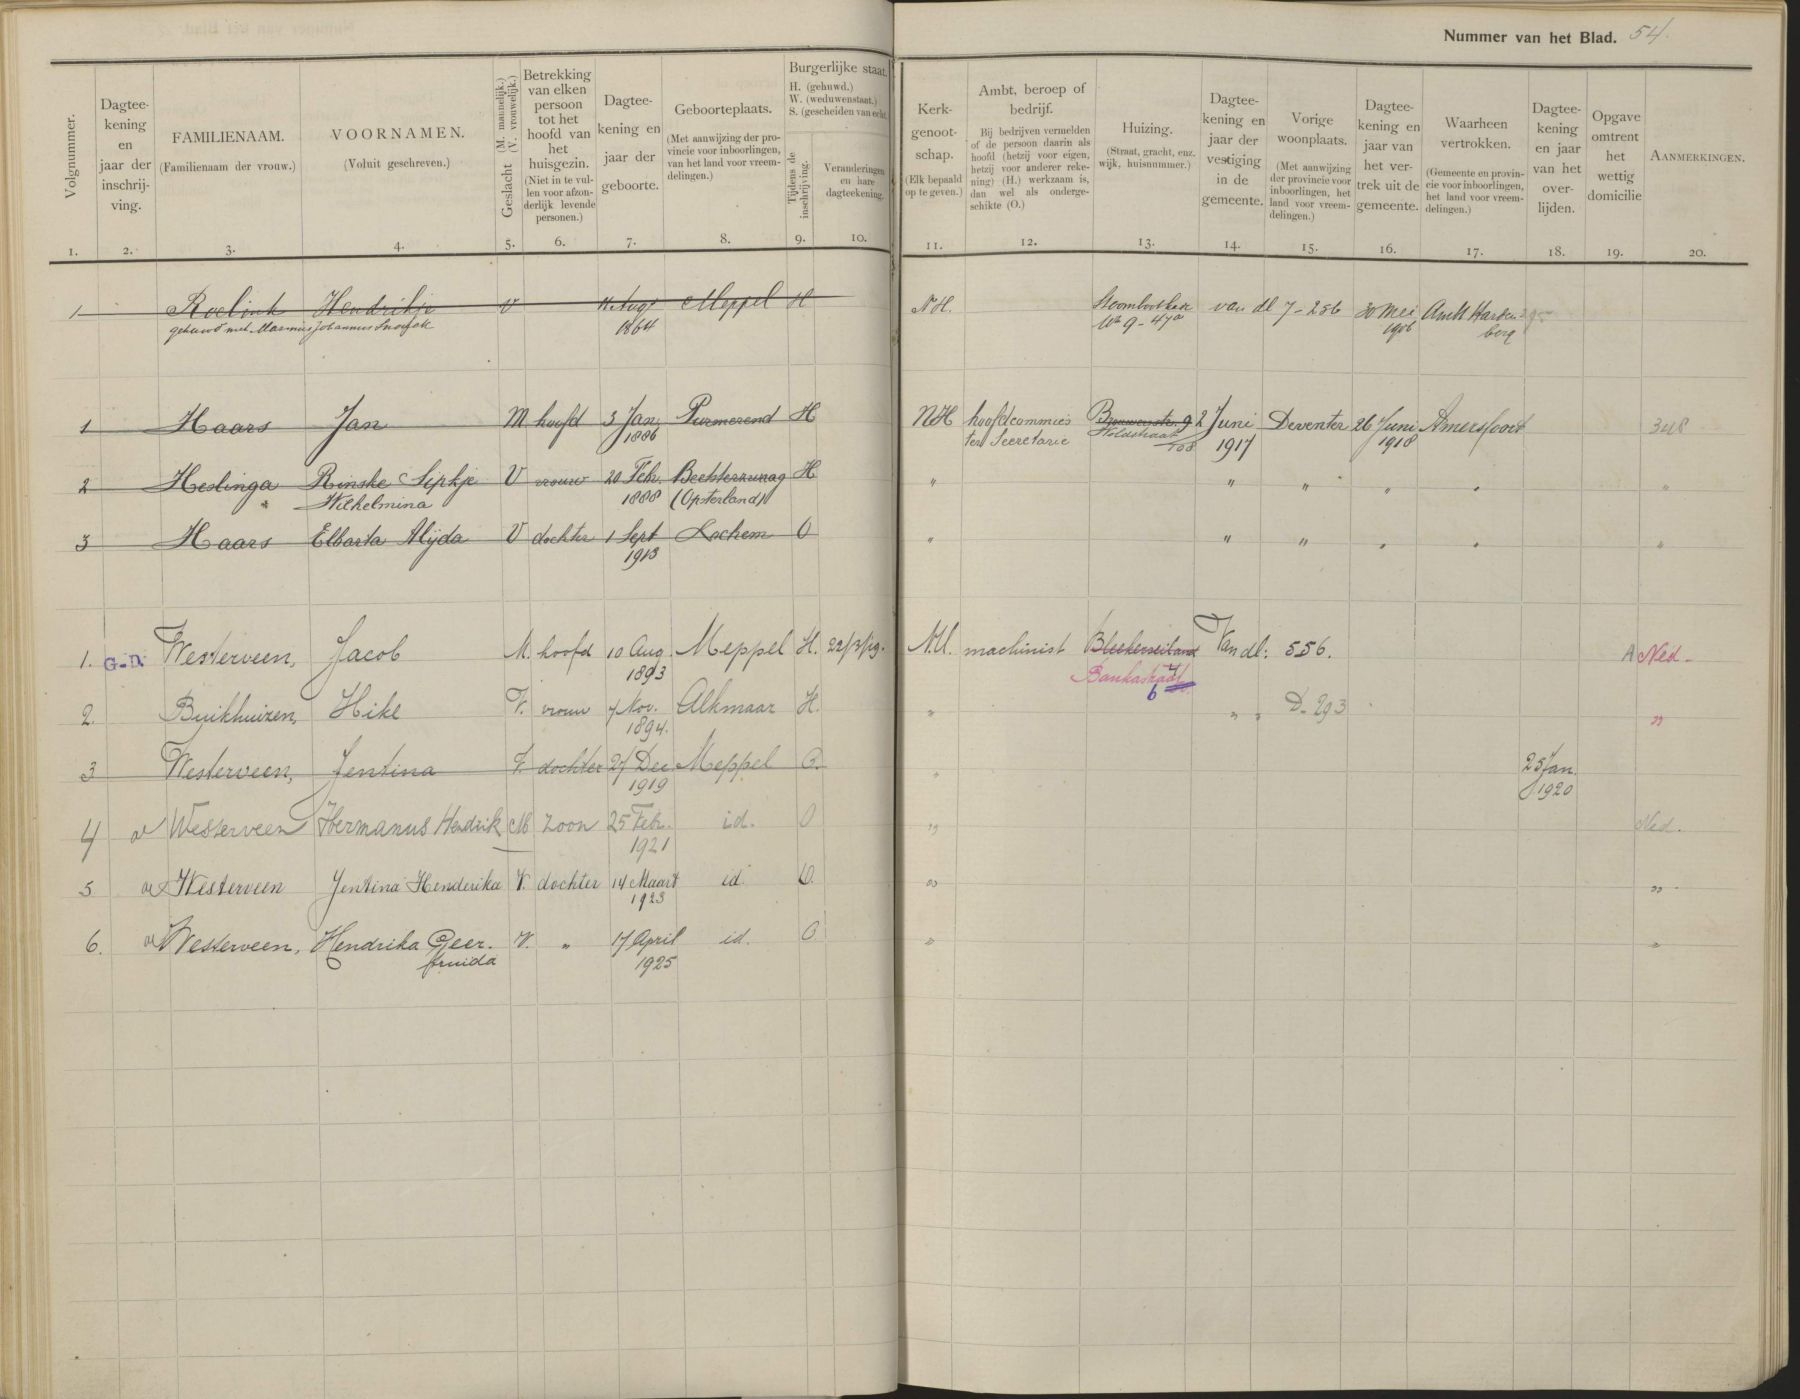 Nummer van het Blad. 54.
Volgnummer.
Dagtee-
kening
en
jaar der
inschrij-
ving.
FAMILIENAAM.
(Familienaam der vrouw.)
VOORNAMEN.
(Voluit geschreven.)
Geslacht (M. mannelijk.) (V. vrouwelijk.)
Betrekking
van elken
persoon
tot het
hoofd van
het
huisgezin.
(Niet in te vul-
len voor afzon-
derlijk levende
personen.)
Dagtee-
kening en
jaar der
geboorte.
Geboorteplaats.
(Met aanwijzing der pro-
vincie voor inboorlingen,
van het land voor vreem-
delingen.)
Burgerlijke staat.
H. (gehuwd.)
W. (weduwenstaat.)
S. (gescheiden van echt.
Tijdens de
inschrijving.
Veranderingen
en hare
dagteekening.
Kerk-
genoot-
schap.
(Elk bepaald
op te geven.)
Ambt, beroep of
bedrijf.
Bij bedrijven vermelden
of de persoon daarin als
hoofd (hetzij voor eigen,
hetzij voor anderer reke-
ning) (H.) werkzaam is,
dan wel als onderge-
schikte (O.)
Huizing.
(Straat, gracht, enz.
wijk, huisnummer.)
Dagtee-
kening en
jaar der
vestiging
in de
gemeente.
Vorige
woonplaats.
(Met aanwijzing
der provincie voor
inboorlingen, het
land voor vreem-
delingen.)
Dagtee-
kening en
jaar van
het ver-
trek uit de
gemeente.
Waarheen
vertrokken.
(Gemeente en provin-
cie voor inboorlingen,
het land voor vreem-
delingen.)
Dagtee-
kening
en jaar
van het
over-
lijden.
Opgave
omtrent
het
wettig
domicilie
AANMERKINGEN.
1. 2. 3. 4. 5. 6. 7. 8. 9. 10. 11. 12. 13. 14. 15. 16. 17. 18. 19. 20.
1 Roelink Hendrikje V 11 Aug Meppel H N.H. van dl 7-256 30 Mei Ambt Harden-
gehuwd met Marinus Johannus 1864 Wk 9-47a 1906 berg
1 Haars Jan M hoofd 3 Jan. Purmerend H NH hoofdcommies Brouwerstr. 9 2 Juni Deventer 26 Juni Amersfoort 348
1886 ter Secretarie Woldstraat 108 1917 1918
2 Heslinga Rinske Sipkje V vrouw 20 Feb. Beetsterzwaag H " " " " " "
Wilhelmina 1888 (Opsterland)
3 Haars Elbarta Alijda V dochter 1 Sept Lochem O " " " " " "
1913
1. G-D. Westerveen, Jacob M. hoofd 10 Aug. Meppel H. 22/3/19. N.H. machinist Bleekerseiland Van dl: 556. A Ned-
1893 Bankastraat
6
2. Buikhuizen, Hike V. vrouw 7 Nov. Alkmaar H. " " " D-293 "
1894.
3 Westerveen, Jentina V. dochter 27 Dec Meppel O. " 25 Jan.
1919 1920
4 Westerveen Hermanus Hendrik M zoon 25 Febr. id. O " Ned.
1921
5 Westerveen Jentina Henderika V. dochter 14 Maart id. O. " "
1923
6. Westerveen, Hendrika Geer- V. " 17 April id. O " "
truida 1925